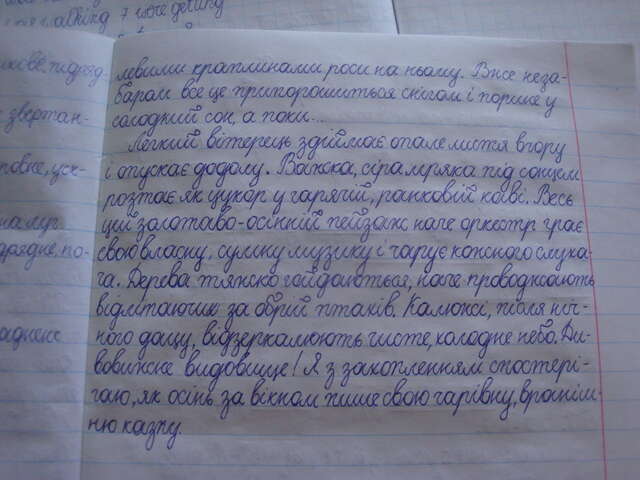 alking 7 were getting
левими краплинами роси на ньому. Вже неза-
баром все це припорошиться снігом і порине у
солодкий сон, а поки...
Легкий вітерець здіймає опале листя вгору
і опускає додолу. Важка, сіра мряка під сонцем
розтає як цукор у гарячій, ранковій каві. Весь
цей золотаво-осінній пейзаж наче оркестр грає
свою власну, сумну музику і чарує кожного слуха-
ча. Дерева тяжко гойдаються, наче проводжають
відлітаючих за обрій птахів. Калюжі, після ніч-
ного дощу, відзеркалюють чисте, холодне небо. Ди-
вовижне видовище! Я з захопленням спостері-
гаю, як осінь за вікном пише свою чарівну, враніш-
ню казку.
звертан-